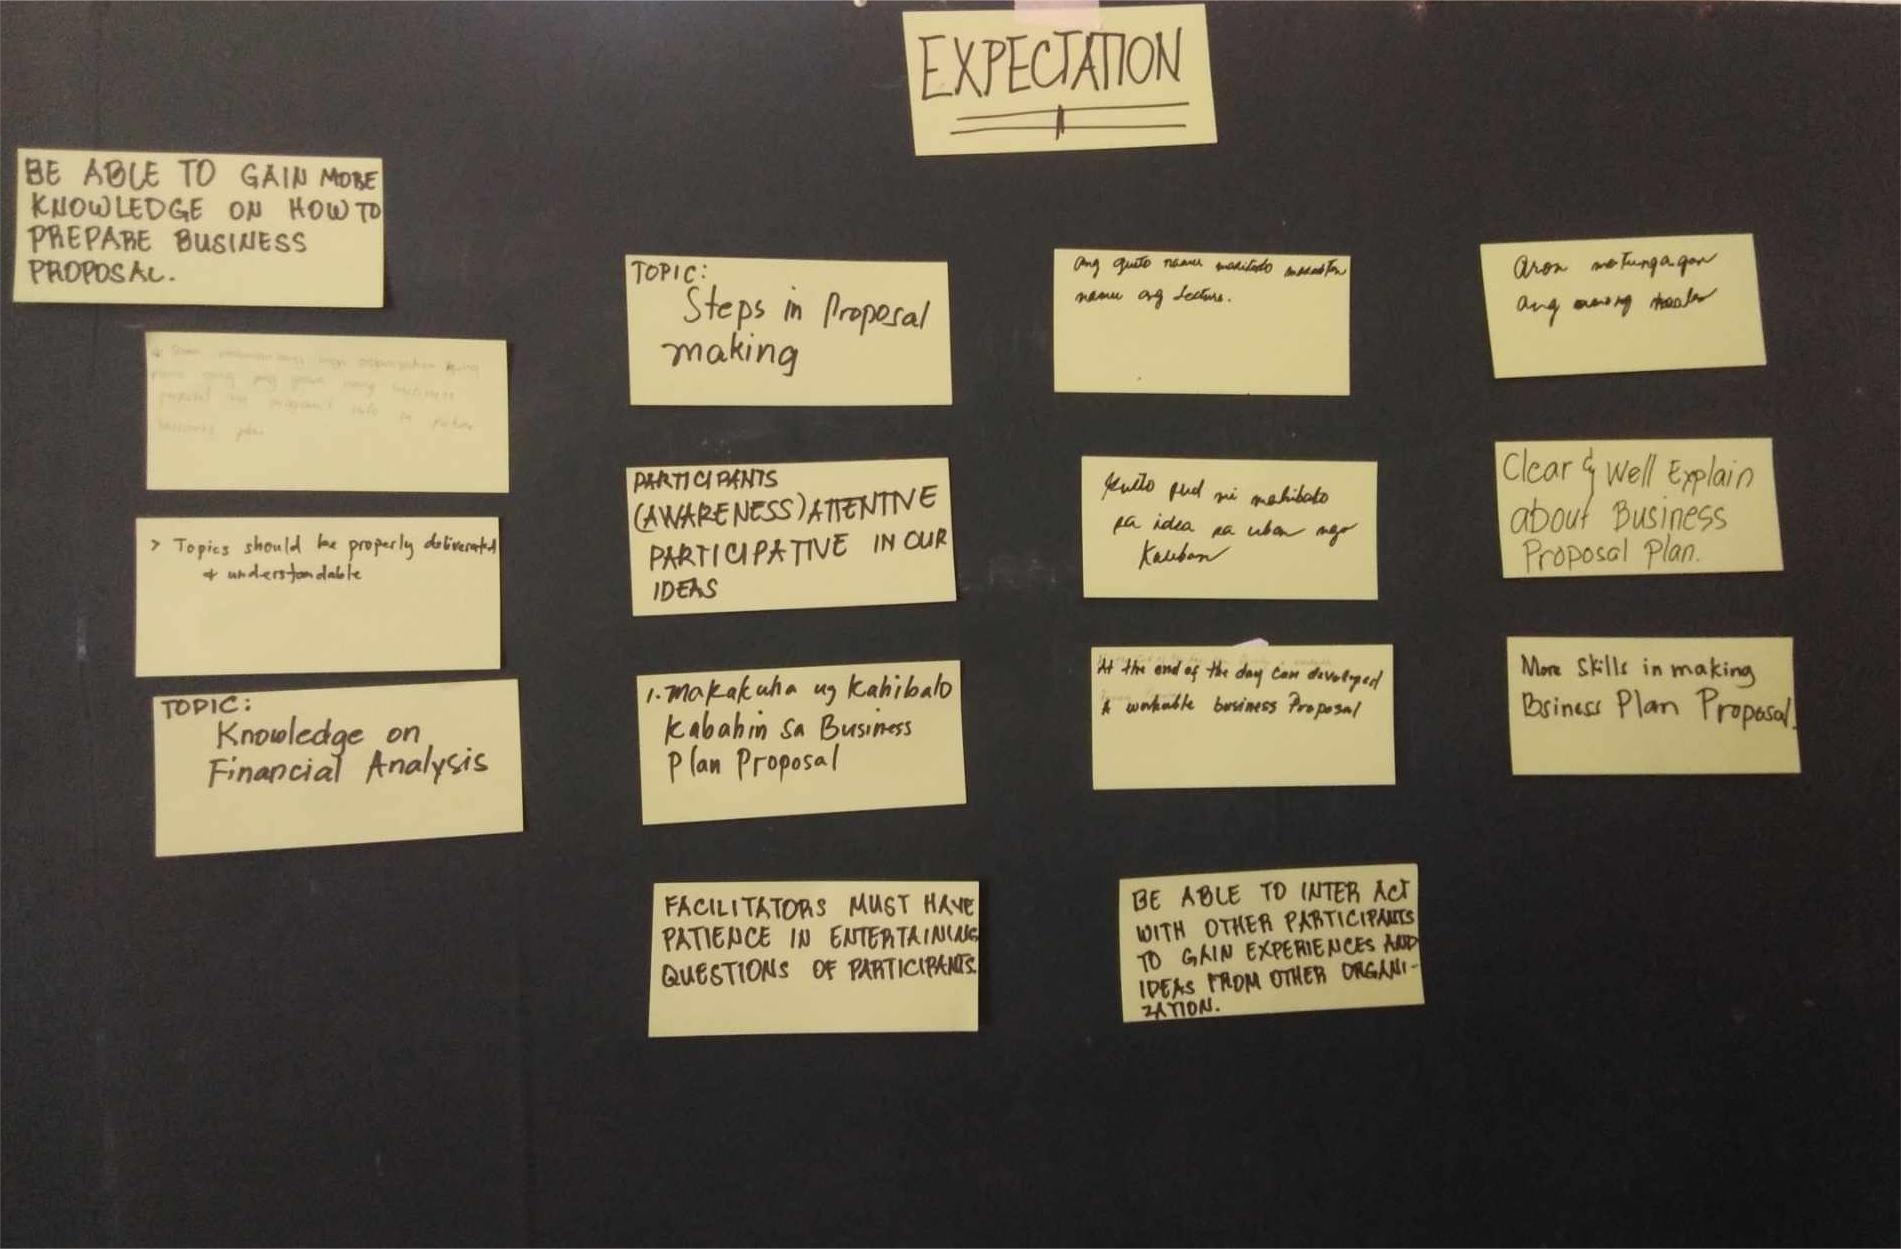 EXPECTATION
BE ABLE TO GAIN MORE
KNOWLEDGE ON HOW TO
PREPARE BUSINESS
PROPOSAL.
> Topics should be properly deliverated
+ understandable
TOPIC:
Knowledge on
Financial Analysis
TOPIC:
Steps in Proposal
making
PARTICIPANTS
(AWARENESS) ATTENTIVE
PARTICIPATIVE IN OUR
IDEAS
1. makakuha ug Kahibalo
Kabahin sa Business
Plan Proposal
FACILITATORS MUST HAVE
PATIENCE IN ENTERTAINING
QUESTIONS OF PARTICIPANTS.
Ang gusto namu
namu ang lecture.
Gusto pud mi mahibalo
sa idea sa uban nga
Kauban
At the end of the day can developed
A workable business Proposal
BE ABLE TO INTER ACT
WITH OTHER PARTICIPANTS
TO GAIN EXPERIENCES AND
IDEAS FROM OTHER ORGANI-
ZATION.
Aron matungagan
ang among
Clear & Well Explain
about Business
Proposal Plan.
More skills in making
Bsiness Plan Proposal.